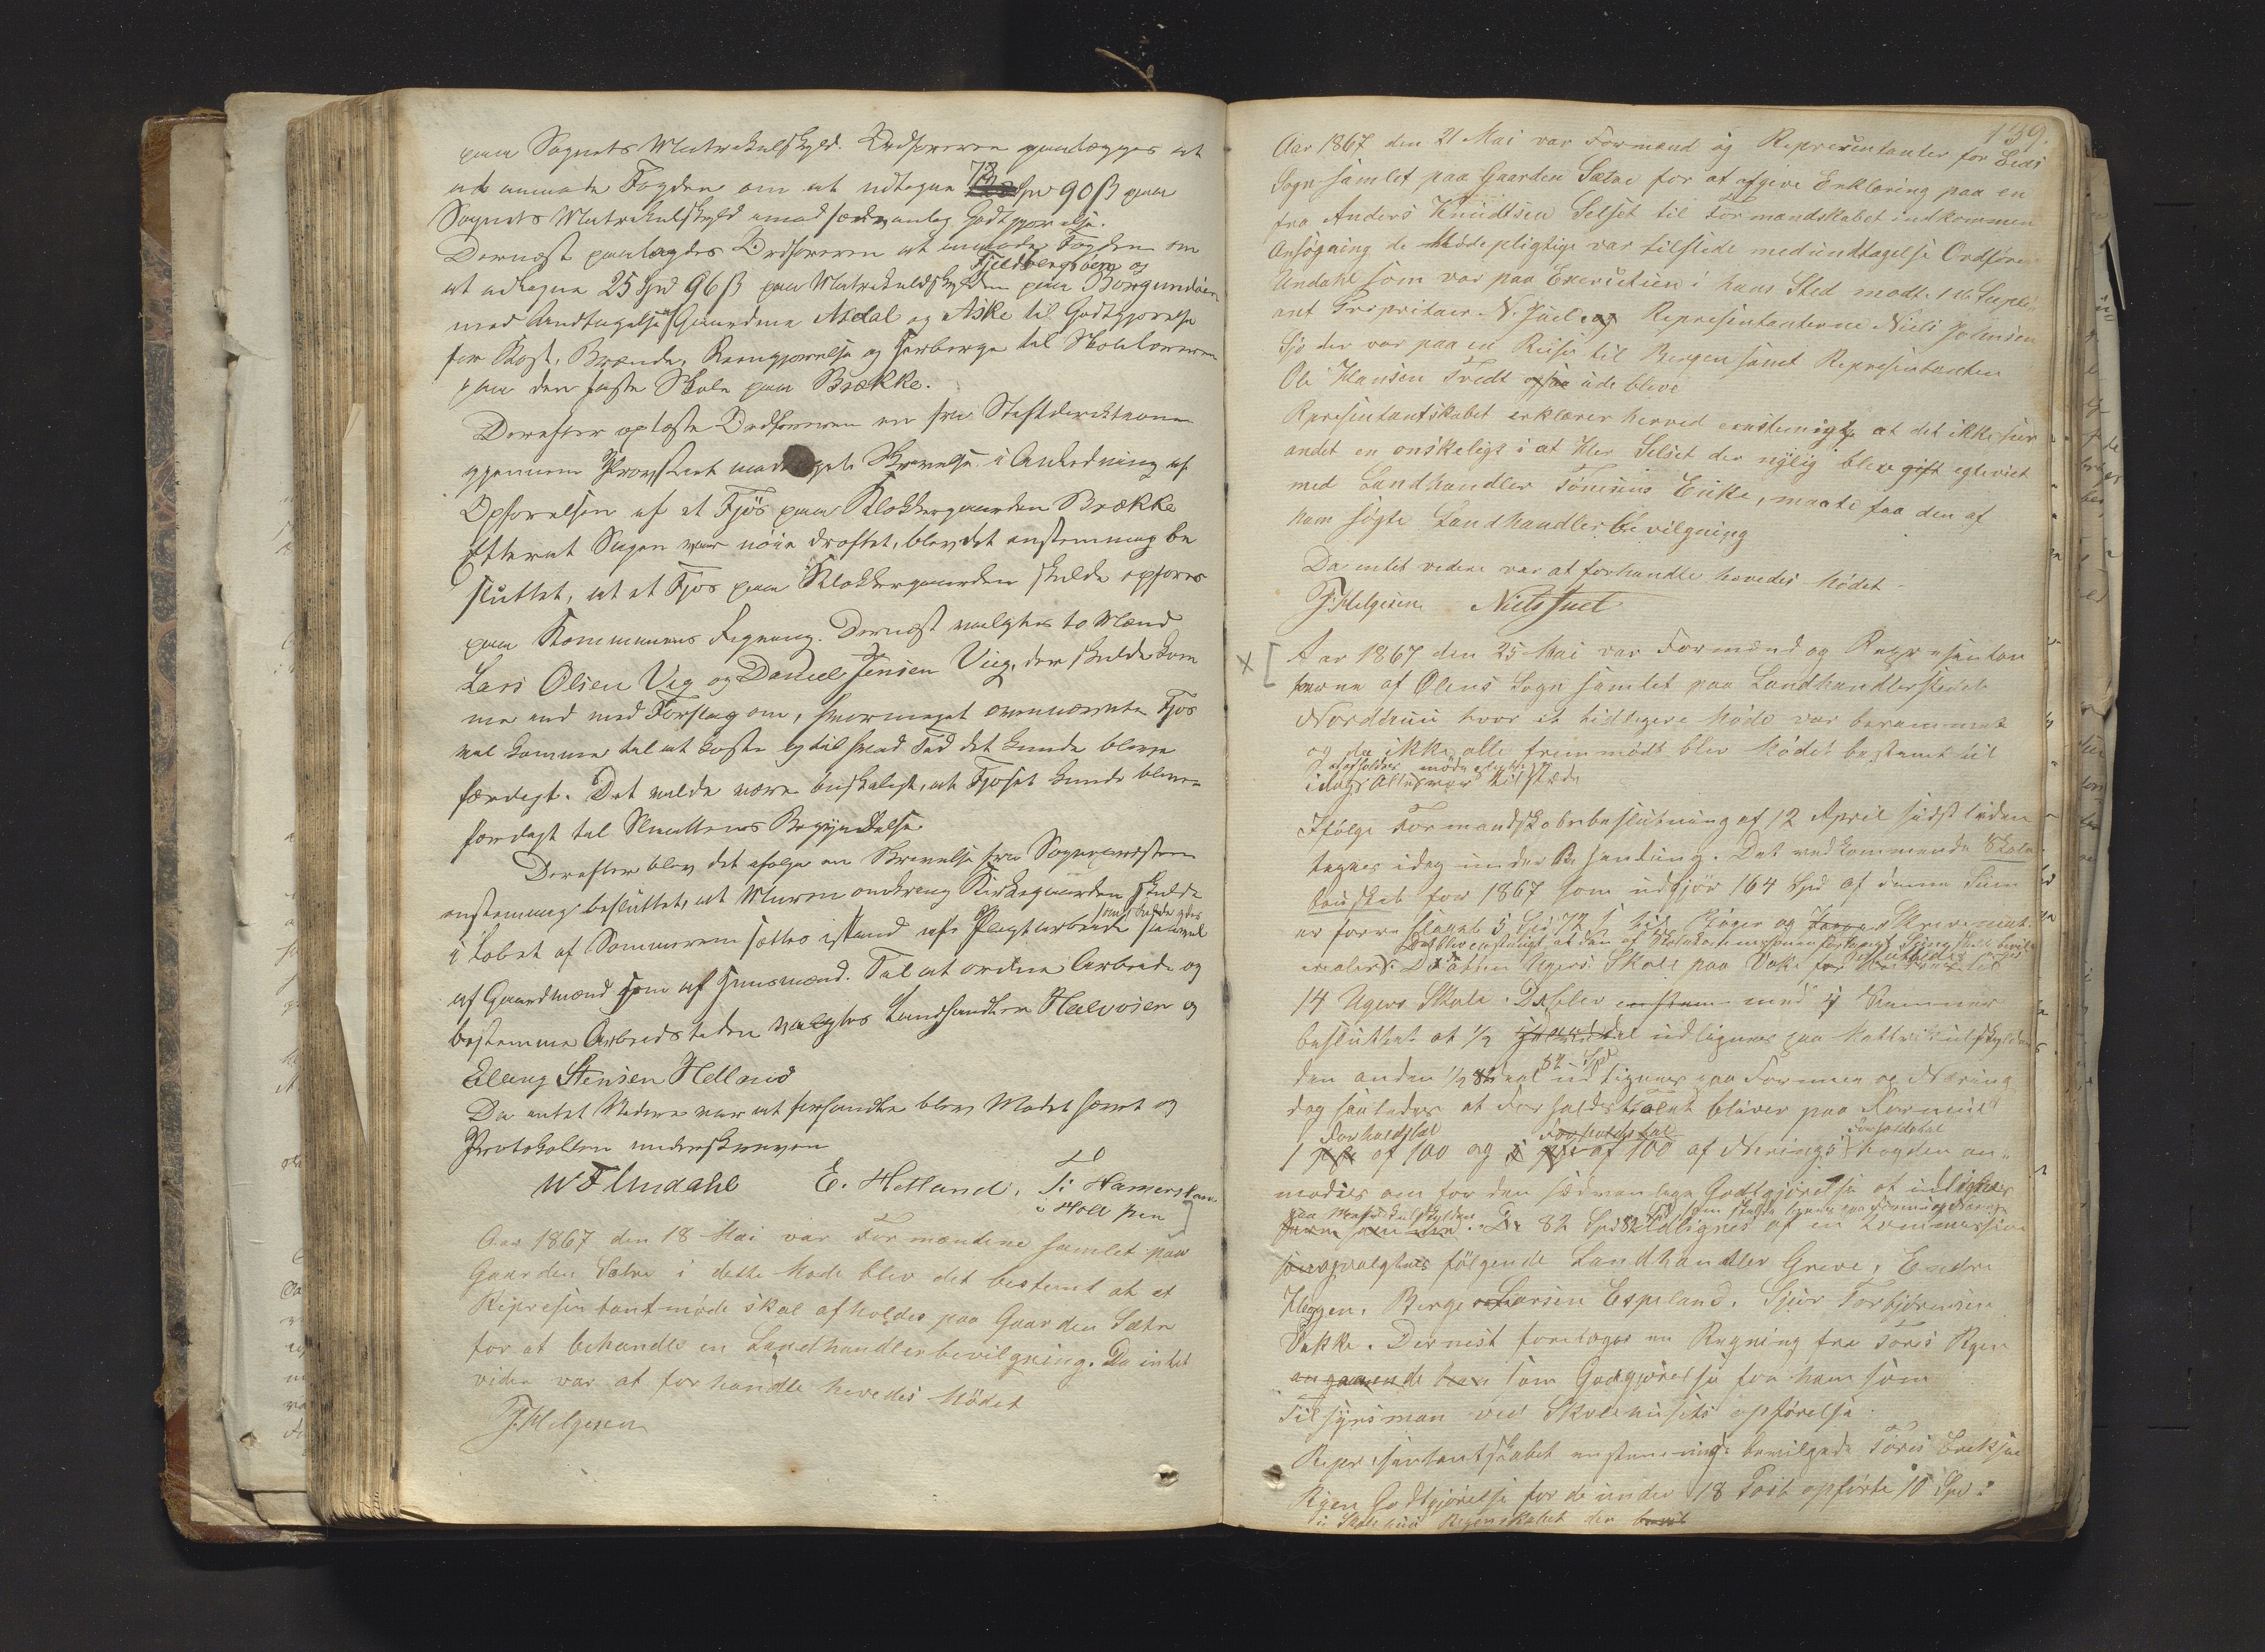 paa Sognets Matrikulskyld. Ordføreren paalægges at
at anmode Fogden om at udtegne 72 Spd 90 ß paa
Sognets Matrikulskyld imod sædvanlig Godtgjørelse.
Dernæst paalagdes Ordføreren at anmode Fogden om
Fjeldbergøen og
at udtegne 25 Spd 96 ß paa Matrikulskylden paa Borgundøen
med Undtagelse af Gaardene Asdal og Aske til Godtgjørelse
for Kost, Brænde, Reengjørelse og Herberge til Skolelæreren
paa den faste Skole paa Brække.
Derefter oplæste Ordføreren en fra Stiftdirektionen
gjennem Provstiet modtaget Skrivelse i Anledning af
Opførelsen af et Fjös paa Klokkergaarden Brække
Efterat Sagen var nöie drøftet, blev det enstemmig be
sluttet, at et Fjøs paa Klokkergaarden skulde opføres
paa Kommunens Regning. Dernæst valgtes to Mænd
Lars Olsen Vig og Daniel Jensen Viig, der skulde kom
me ind med Forslag om, hvormeget ovennævnte Fjøs
vil komme til at koste og til hvad Tid det kunde blive
færdigt. Det vilde være ønskeligt, at Fjøset kunde blive
færdigt til Slaattens Begyndelse.
Derefter blev det ifølge en Skrivelse fra Sognepresten
enstemmig besluttet, at Muren omkring Kirkegaarden skulde
i Løbet af Sommeren sættes istand ved Pligtarbeide saavel
af Gaardmænd som af Huusmænd. Til at ordne Arbeide og
bestemme Arbeidstiden valgtes Landhandler Halvorsen og
Elling Stensen Helland
Da intet Videre var at forhandle blev Mødet hævet og
Protokollen underskreven
W F Undahl E. Hetland. T. Hamerstam
i Hole pen
Aar 1867 den 18 Mai var Formændene samlet paa
Gaarden Sætre i dette Møde blev det bestemt at et
Repræsentantmøde skal afholdes paa Gaarden Sætre
for at behandle en Landhandlerbevilgning. Da intet
viden var at forhandle hevedes Mödet
J. Helgesen
139.
Aar 1867 den 21 Mai var Formænd og Representanter for Eids
Sogn samlet paa Gaarden Sætre for at afgive Erklæring paa en
fra Anders Knudtsen Selset til Formandskabet indkommen
Ansøgning de Mödepligtige var tilstede med undtagelse Ordføren
Undahl som var paa Execution i hans Sted modte 1ste Suple
ant Propritær N. Juel og Representanterne Niels Johnsen
Sjo der var paa en Reise til Bergen samt Representanten
Ole Hansen Tvedt ogsaa udebleve
Representantskabet erklærer herved eenstemigt at det ikke har
andet en onskeligt i at Hr Selset der nylig blev gift egteviet
med Landhandler Tönnius Enke, maate faa den af
ham sögte Landhandler bevilgning
Da intet videre var at forhandle hevedes Mödet
J. Helgesen Niels Juel
Aar 1867 den 25 Mai var Formænd og Repræsentan
terne af Ølens Sogn samlet paa Landhandlerstedet
Norddhuus hvor et tidligere Möde var berammet
og da ikke alle fremmødt blev Mødet bestemt til
idag Alle var tilstede
Ifölge Formandskabsbeslutning af 12 April sidst leden
tages idag under Behandling. Det vedkommende Skole
budskab for 1867 som udgjör 164 Spd af denne Sum
er foreslaaet 5 Spd 72 ß til Böger og Skrivemat
erialer. De Otten Ugers Skole paa Vake
14 Ugers Skole. Det blev med 4 Stemmer
besluttet at 1/2 udlignes paa Mattrikulskylden
den anden 1/2 82 Spd udlignes paa Formue og Næring
dog saaledes at Forholdstallet bliver paa Formue
Forholdstal Forholdstal
1 af 100 og af 100 af Nerings Fogden an
modes om for den sædvanlige Godtgjörelse at udligne
paa Matrikulskylden De 82 Spd udlignes af en Kommission
valgtes fölgende Landhandler Greve, Endre
Heggen. Berge Larsen Espeland. Sjur Torbjörnsen
Vakke. Dernest foretoges en Regning fra Tøris Ryen
angaaende som Godgjörelse for ham som
Tilsynsman ved Skolehusets opførelse.
Representantskabet enstemmigt bevilgede Töris Eriksen
Ryen Godtgjörelse for de under 18 Post opförte 10 Spd.
i Skolehus Regnskabet